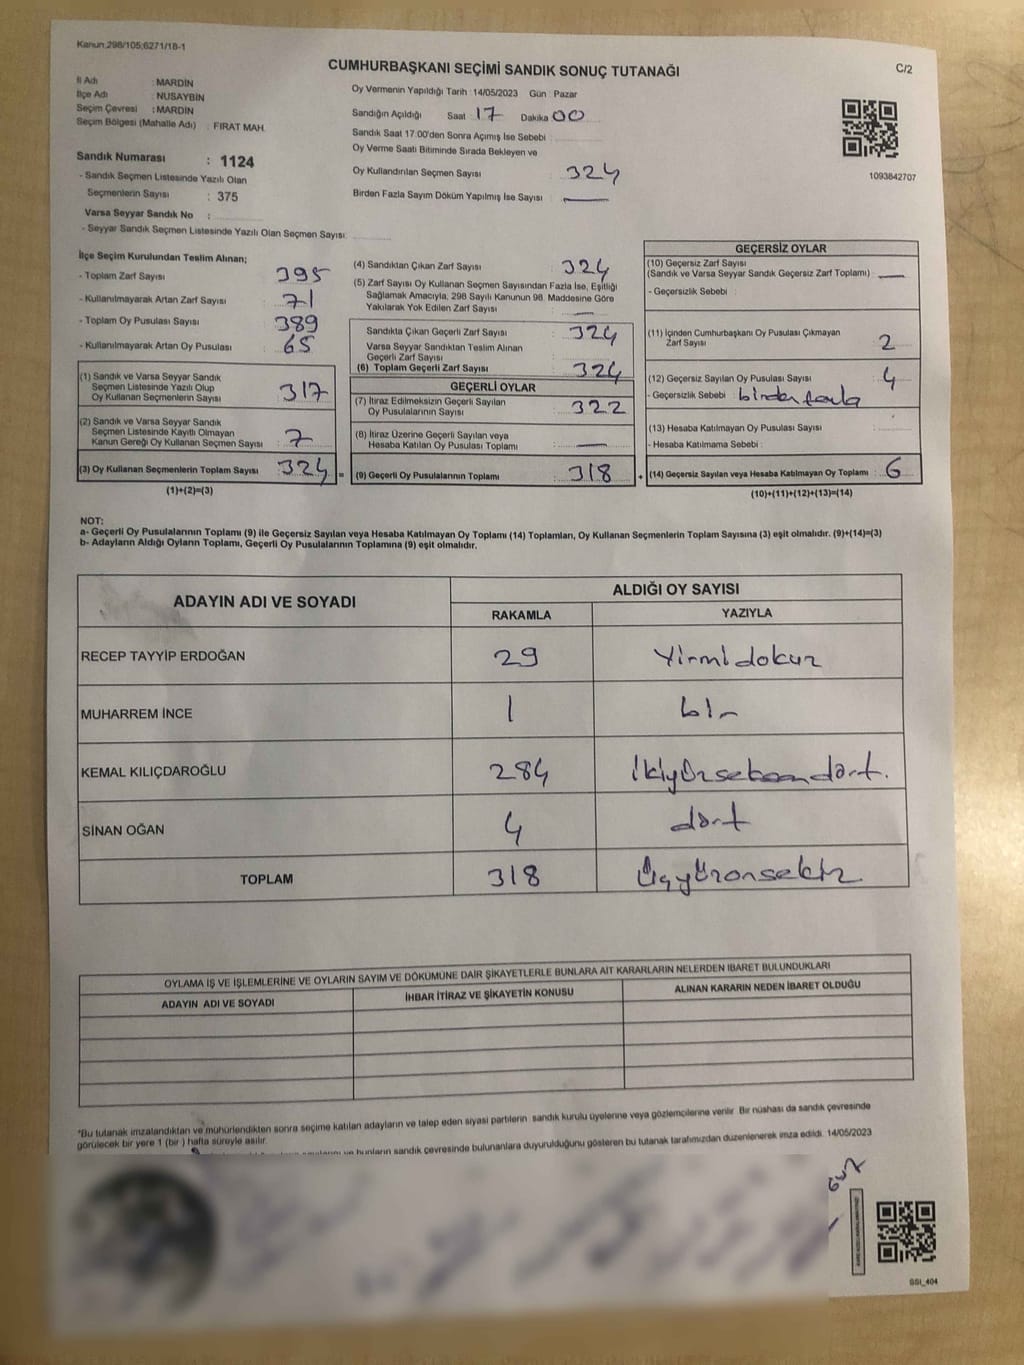 Kanun.298/105;6271/18-1
CUMHURBAŞKANI SEÇİMİ SANDIK SONUÇ TUTANAĞI
C/2
İl Adı : MARDİN
İlçe Adı : NUSAYBİN
Seçim Çevresi : MARDİN
Seçim Bölgesi (Mahalle Adı) : FIRAT MAH.
Sandık Numarası : 1124
- Sandık Seçmen Listesinde Yazılı Olan
Seçmenlerin Sayısı : 375
Varsa Seyyar Sandık No :
- Seyyar Sandık Seçmen Listesinde Yazılı Olan Seçmen Sayısı:
Oy Vermenin Yapıldığı Tarih : 14/05/2023 Gün : Pazar
Sandığın Açıldığı Saat 17 Dakika 00
Sandık Saat 17:00'den Sonra Açımış İse Sebebi :
Oy Verme Saati Bitiminde Sırada Bekleyen ve
Oy Kullandırılan Seçmen Sayısı : 324
Birden Fazla Sayım Döküm Yapılmış İse Sayısı : —
1093842707
İlçe Seçim Kurulundan Teslim Alınan;
- Toplam Zarf Sayısı : 395
- Kullanılmayarak Artan Zarf Sayısı : 71
- Toplam Oy Pusulası Sayısı : 389
- Kullanılmayarak Artan Oy Pusulası : 65
(1) Sandık ve Varsa Seyyar Sandık
Seçmen Listesinde Yazılı Olup
Oy Kullanan Seçmenlerin Sayısı : 317
(2) Sandık ve Varsa Seyyar Sandık
Seçmen Listesinde Kayıtlı Olmayan
Kanun Gereği Oy Kullanan Seçmen Sayısı : 7
(3) Oy Kullanan Seçmenlerin Toplam Sayısı : 324 =
(1)+(2)=(3)
(4) Sandıktan Çıkan Zarf Sayısı : 324
(5) Zarf Sayısı Oy Kullanan Seçmen Sayısından Fazla İse, Eşitliği
Sağlamak Amacıyla, 298 Sayılı Kanunun 98. Maddesine Göre
Yakılarak Yok Edilen Zarf Sayısı : —
Sandıkta Çıkan Geçerli Zarf Sayısı : 324
Varsa Seyyar Sandıktan Teslim Alınan
Geçerli Zarf Sayısı :
(6) Toplam Geçerli Zarf Sayısı : 324
GEÇERLİ OYLAR
(7) İtiraz Edilmeksizin Geçerli Sayılan
Oy Pusulalarının Sayısı : 322
(8) İtiraz Üzerine Geçerli Sayılan veya
Hesaba Katılan Oy Pusulası Toplamı : —
(9) Geçerli Oy Pusulalarının Toplamı : 318 +
GEÇERSİZ OYLAR
(10) Geçersiz Zarf Sayısı
(Sandık ve Varsa Seyyar Sandık Geçersiz Zarf Toplamı) : —
- Geçersizlik Sebebi :
(11) İçinden Cumhurbaşkanı Oy Pusulası Çıkmayan
Zarf Sayısı : 2
(12) Geçersiz Sayılan Oy Pusulası Sayısı : 4
- Geçersizlik Sebebi : birden fazla
(13) Hesaba Katılmayan Oy Pusulası Sayısı :
- Hesaba Katılmama Sebebi :
(14) Geçersiz Sayılan veya Hesaba Katılmayan Oy Toplamı : 6
(10)+(11)+(12)+(13)=(14)
NOT:
a- Geçerli Oy Pusulalarının Toplamı (9) ile Geçersiz Sayılan veya Hesaba Katılmayan Oy Toplamı (14) Toplamları, Oy Kullanan Seçmenlerin Toplam Sayısına (3) eşit olmalıdır. (9)+(14)=(3)
b- Adayların Aldığı Oyların Toplamı, Geçerli Oy Pusulalarının Toplamına (9) eşit olmalıdır.
ADAYIN ADI VE SOYADI
ALDIĞI OY SAYISI
RAKAMLA YAZIYLA
RECEP TAYYİP ERDOĞAN 29 Yirmidokuz
MUHARREM İNCE 1 bir
KEMAL KILIÇDAROĞLU 284 İkiyüzseksendört.
SİNAN OĞAN 4 dört
TOPLAM 318 Üçyüzonsekiz
OYLAMA İŞ VE İŞLEMLERİNE VE OYLARIN SAYIM VE DÖKÜMÜNE DAİR ŞİKAYETLERLE BUNLARA AİT KARARLARIN NELERDEN İBARET BULUNDUKLARI
ADAYIN ADI VE SOYADI İHBAR İTİRAZ VE ŞİKAYETİN KONUSU ALINAN KARARIN NEDEN İBARET OLDUĞU
*Bu tutanak imzalandıktan ve mühürlendikten sonra seçime katılan adayların ve talep eden siyasi partilerin sandık kurulu üyelerine veya gözlemcilerine verilir. Bir nüshası da sandık çevresinde
görülecek bir yere 1 (bir) hafta süreyle asılır.
bunların sandık çevresinde bulunanlara duyurulduğunu gösteren bu tutanak tarafımızdan düzenlenerek imza edildi. 14/05/2023
SSI_404